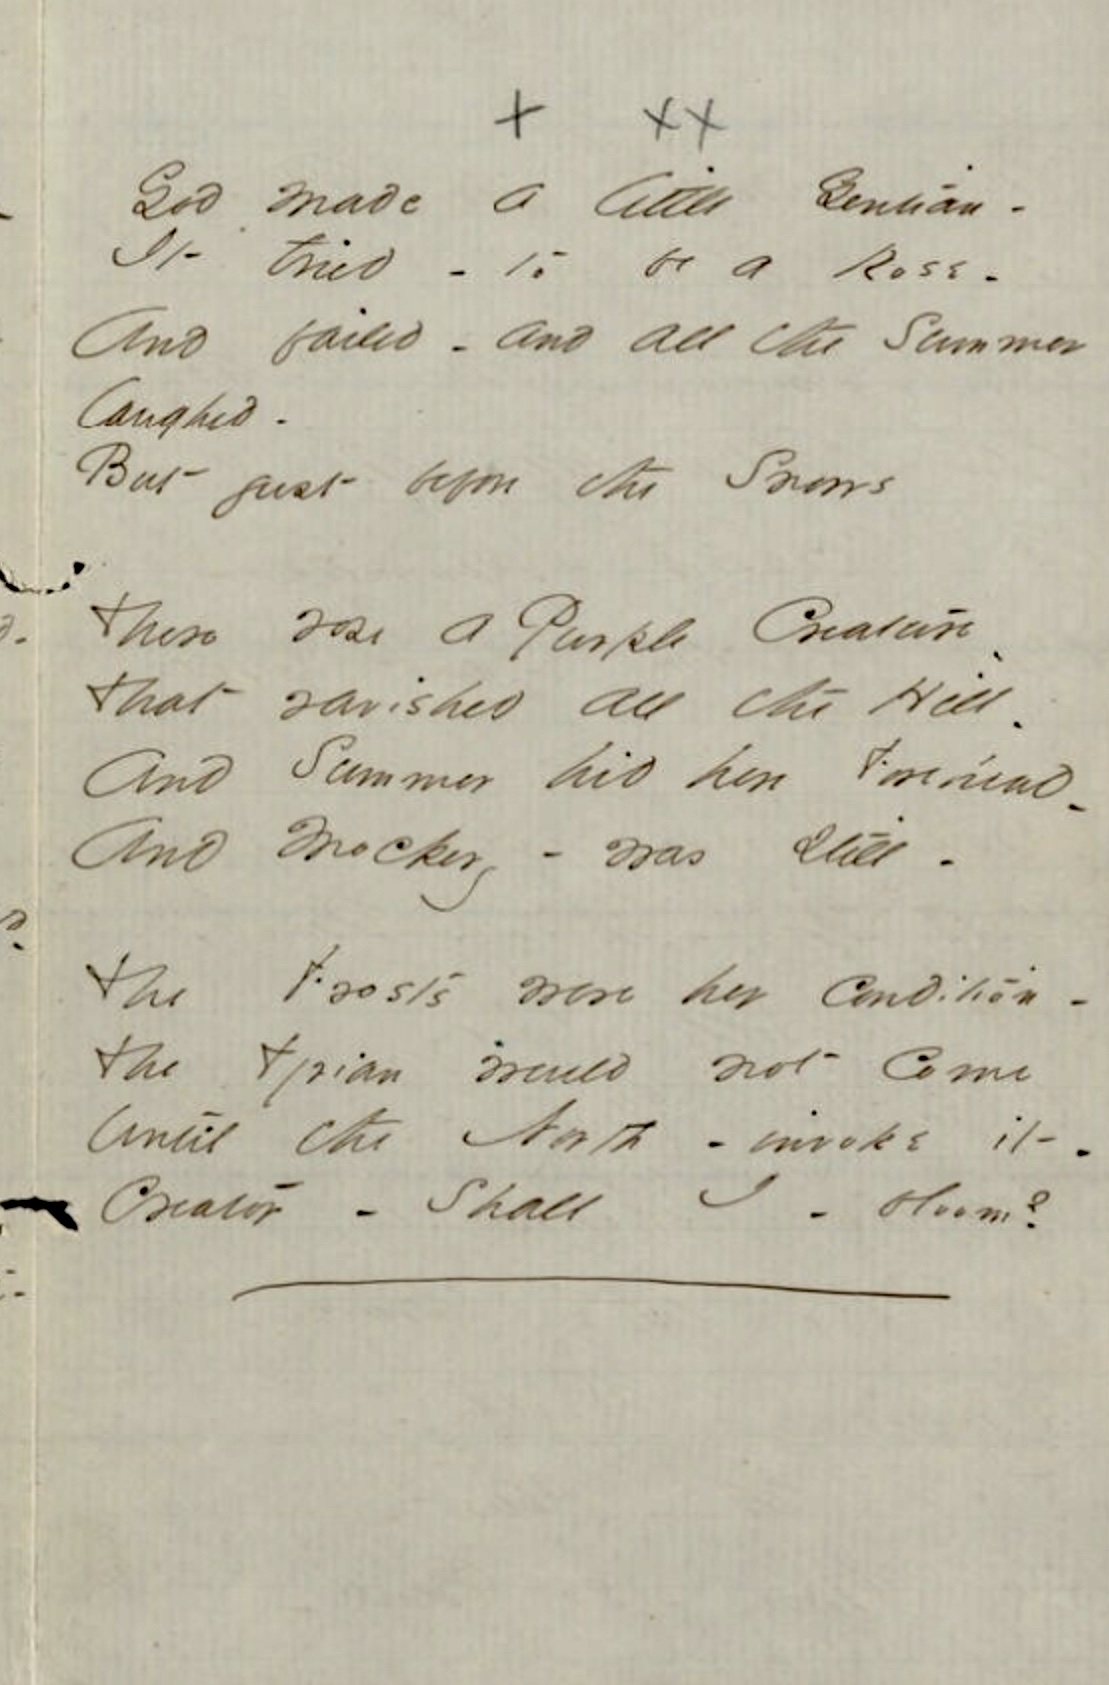 + ++
God made a little Gentian -
It tried - to be a Rose -
And failed - and all the Summer
laughed -
But just before the Snows
There rose a Purple Creature -
That ravished all the Hill -
And Summer hid her Forehead -
And Mockery - was still -
The Frosts were her condition -
The Tyrian would not come
Until the North - invoke it -
Creator - Shall I - bloom?